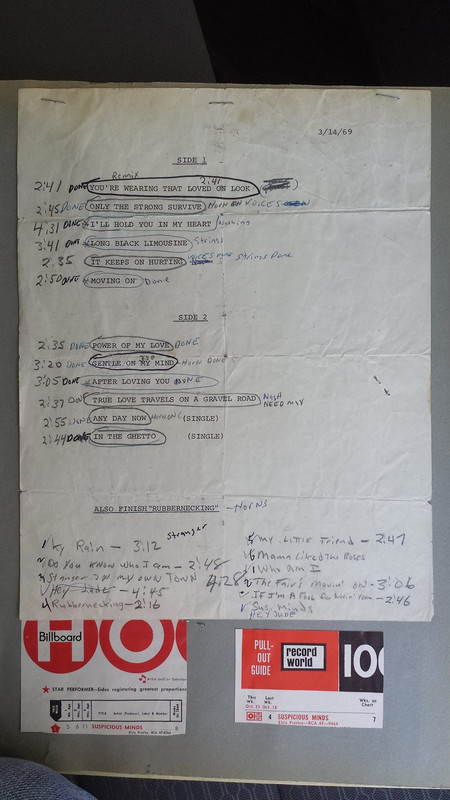 3/14/69
SIDE 1
Remix 2:41
2:41 DONE YOU'RE WEARING THAT LOVED ON LOOK
2:45 DONE ONLY THE STRONG SURVIVE HORN VOICES
4:31 DONE I'LL HOLD YOU IN MY HEART Nothing
3:41 DONE LONG BLACK LIMOUSINE Strings
2:35 IT KEEPS ON HURTING VOICES Strings Done
2:50 DONE MOVING ON Done
SIDE 2
2:35 DONE POWER OF MY LOVE DONE
3:20 DONE GENTLE ON MY MIND HORN DONE
3:05 DONE AFTER LOVING YOU DONE
2:37 TRUE LOVE TRAVELS ON A GRAVEL ROAD
NEED MIX
2:55 DONE ANY DAY NOW (SINGLE)
2:44 DONE IN THE GHETTO (SINGLE)
ALSO FINISH "RUBBERNECKING" - HORNS
Ky Rain - 3:12
Stranger
2 Do You Know Who I Am - 2:48
3 Stranger my own TOWN 4:28
Hey Jude - 4:45
4 Rubbernecking - 2:16
5 My Little Friend - 2:47
6 Mama Liked The Roses
1 Who Am I
2 The Fair's Movin' On - 3:06
If I'm A Fool For Lovin' You - 2:46
Sus. Minds
HEY JUDE
Billboard HO
★ STAR PERFORMER—Sides registering greatest proportionate
TITLE Artist (Producer), Label & Number
5 6 11 SUSPICIOUS MINDS 8
PULL-OUT GUIDE
record world
10
This Wk. Last Wk. Wks. on Chart
Oct. 25 Oct. 18
4 SUSPICIOUS MINDS 7
Elvis Presley—RCA 47-9764